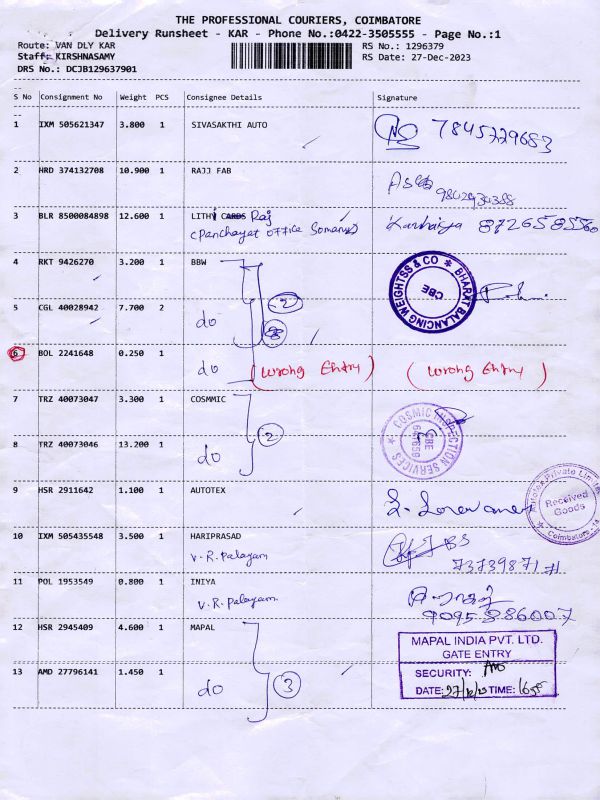 THE PROFESSIONAL COURIERS, COIMBATORE
Delivery Runsheet - KAR - Phone No.:0422-3505555 - Page No.:1
Route: VAN DLY KAR
RS No.: 1296379
Staff: KIRSHNASAMY
RS Date: 27-Dec-2023
DRS No.: DCJB129637901
S No Consignment No Weight PCS Consignee Details Signature
1 IXM 505621347 3.800 1 SIVASAKTHI AUTO 7845729683
2 HRD 374132708 10.900 1 RAJJ FAB
3 BLR 8500084898 12.600 1 LITHI CARDS Raj Kanhaiya 8726585560
(Panchayat office Somanur)
4 RKT 9426270 3.200 1 BBW
BHARAT BALANCING WEIGHTSS & CO
CBE
5 CGL 40028942 7.700 2 do 2
8
6 BOL 2241648 0.250 1 do (Wrong Entry) (Wrong Entry)
7 TRZ 40073047 3.300 1 COSMMIC
COSMIC INSPECTION SERVICES
CBE
8 TRZ 40073046 13.200 1 do 2
9 HSR 2911642 1.100 1 AUTOTEX
Autotex Private Limited
Received
Goods
Coimbatore - 14
10 IXM 505435548 3.500 1 HARIPRASAD
V.R. Palayam
11 POL 1953549 0.800 1 INIYA
V.R. Palayam
9095886007
12 HSR 2945409 4.600 1 MAPAL
MAPAL INDIA PVT. LTD.
GATE ENTRY
13 AMD 27796141 1.450 1 do 3
SECURITY:
DATE: 27/12/23 TIME: 1655